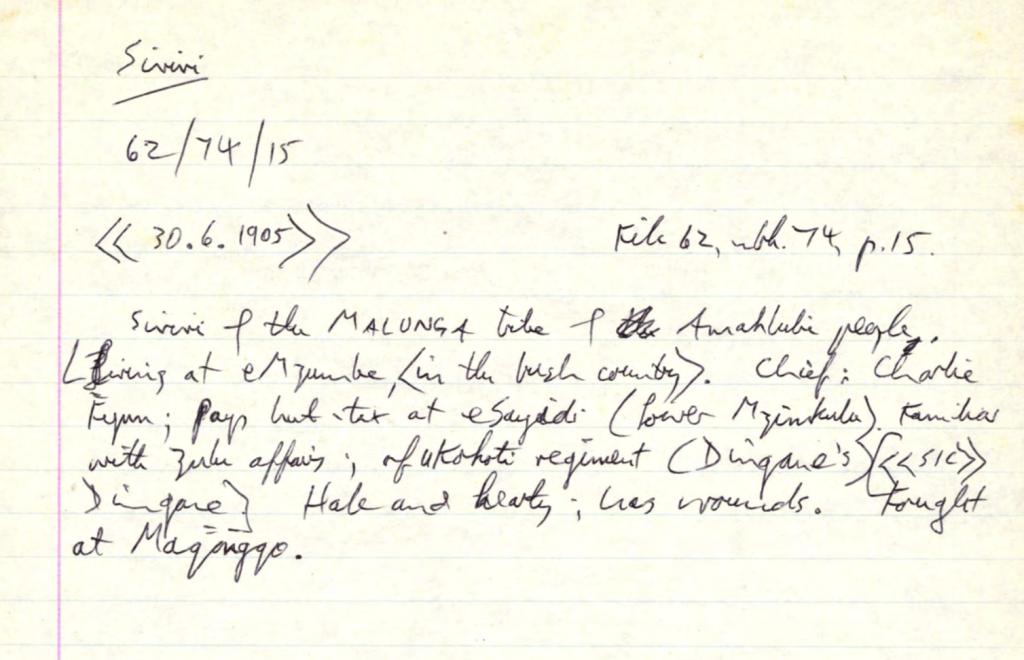 Sivivi
62/74/15
<<30.6.1905>> File 62, nbk. 74, p.15.
Sivivi of the MALUNGA tribe of Amahlubi people.
[Living at eMzumbe, <in the bush country>. Chief: Charlie
Fynn; pays hut-tax at eSayidi (Lower Mzimkulu). Familiar
with Zulu affairs; of uKokoti regiment (Dingane's) [<<SIC>>
Dingane] Hale and hearty; has wounds. Fought
at Maqongqo.